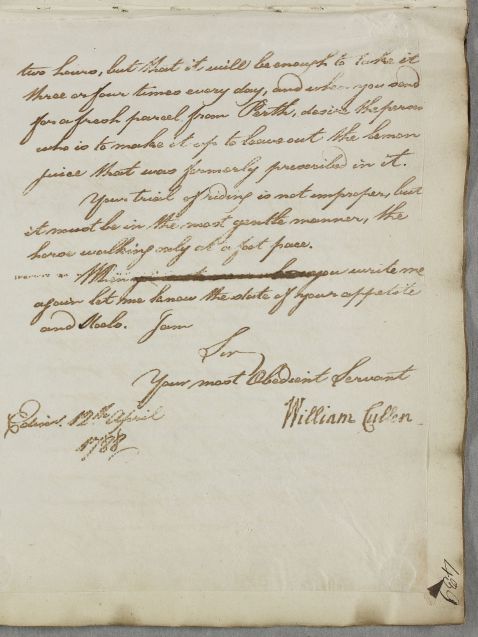 two hours, but that it will be enough to take it
three or four times every day, and when you send
for a fresh parcel from Perth, desire the person
who is to make it up to leave out the lemon
juice that was formerly prescribed in it.
Your trial of riding is not improper, but
it must be in the most gentle manner, the
horse walking only at a foot pace.
When you write me
again let me know the state of your appetite
and Stools. I am
Sir
Your most Obedient Servant
William Cullen
Edinr. 12th April
1788
489